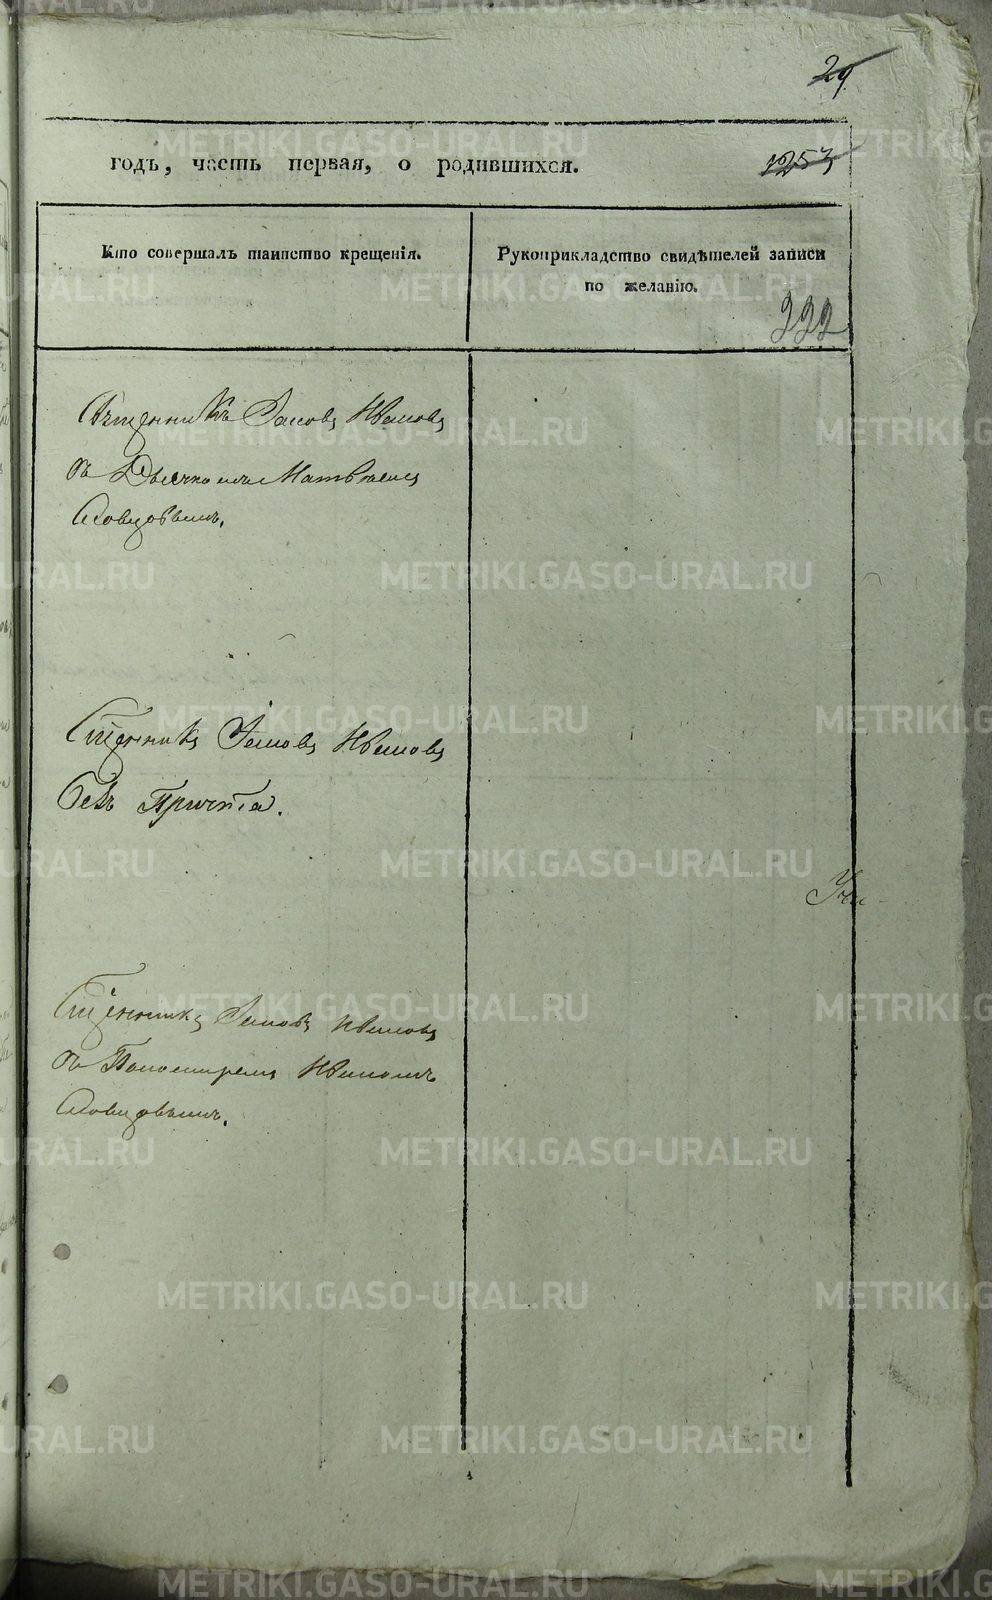 29
годъ, часть первая, о родившихся.
1253
Кто совершалъ таинство крещенія.
Рукоприкладство свидѣтелей записи
по желанію.
222
Священникъ Іаковъ Ивановъ
съ Дьячкомъ Матвѣемъ
Словцовымъ.
Сщенникъ Іаковъ Ивановъ
безъ Причта.
Сщенникъ Іаковъ Ивановъ
съ Пономаремъ Иваномъ
Словцовымъ.
METRIKI.GASO-URAL.RU